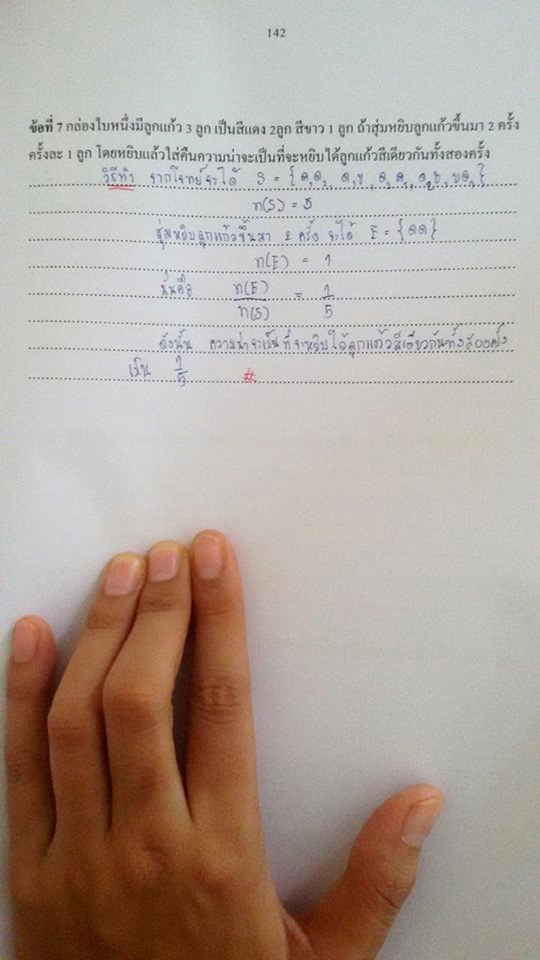 142
ข้อที่ 7 กล่องใบหนึ่งมีลูกแก้ว 3 ลูก เป็นสีแดง 2ลูก สีขาว 1 ลูก ถ้าสุ่มหยิบลูกแก้วขึ้นมา 2 ครั้ง
ครั้งละ 1 ลูก โดยหยิบแล้วใส่คืนความน่าจะเป็นที่จะหยิบได้ลูกแก้วสีเดียวกันทั้งสองครั้ง
วิธีทำ จากโจทย์จะได้ S = {
n(S) = 5
สุ่มหยิบลูกแก้วขึ้นมา 2 ครั้ง จะได้ E = {ดด}
n(E) = 1
นั่นคือ n(E)/n(S) = 1/5
ดังนั้น ความน่าจะเป็นที่จะหยิบได้ลูกแก้วสีเดียวกันทั้งสองครั้ง
เป็น 1/5 #